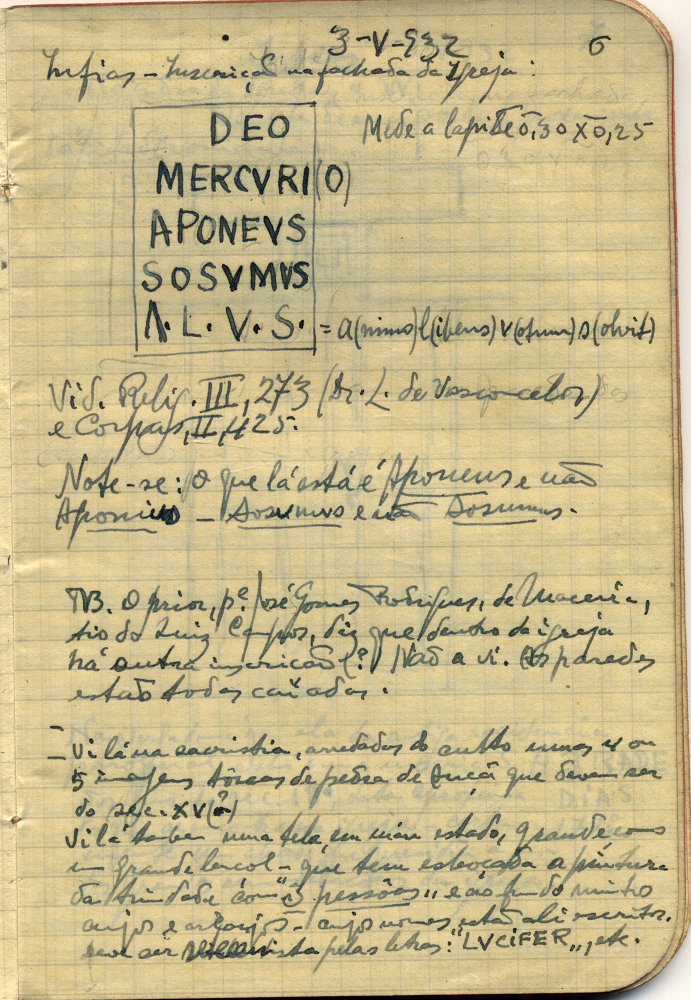 3-V-932
6
Infias - Inscrição na fachada da Igreja:
DEO
MERCVRI(O)
APONEVS
SOSVMVS
A. L. V. S. = a(nimo) l(ibens) v(otum) s(olvit)
Mede a lapide 0,30 X 0,25
Vid. Relig. III, 273 (Dr. L. de Vasconcelos)
e Corpus, II, 425.
Note-se: O que lá está é Aponeus e não
Aponius - Sosumus e não Sosumus.
NB. O prior, pe. José Gomes Rodrigues, de Maceira,
tio do Luiz Campos, diz que dentro da igreja
há outra inscrição (?) Não a vi. As paredes
estão todas caiadas.
- Vi lá na sacristia, arredadas do culto umas 4 ou
5 imagens toscas de pedra de Ançã que devem ser
do sec. XV(?)
Vi lá tambem uma tela, em mau estado, grande como
um grande lençol - que tem esboçada a pintura
da trindade com "3 pessoas" e ao fundo muito
anjos e arcanjos - cujos nomes estão ali escritos.
Deve ser vista pelas letras: "LVCIFER", etc.